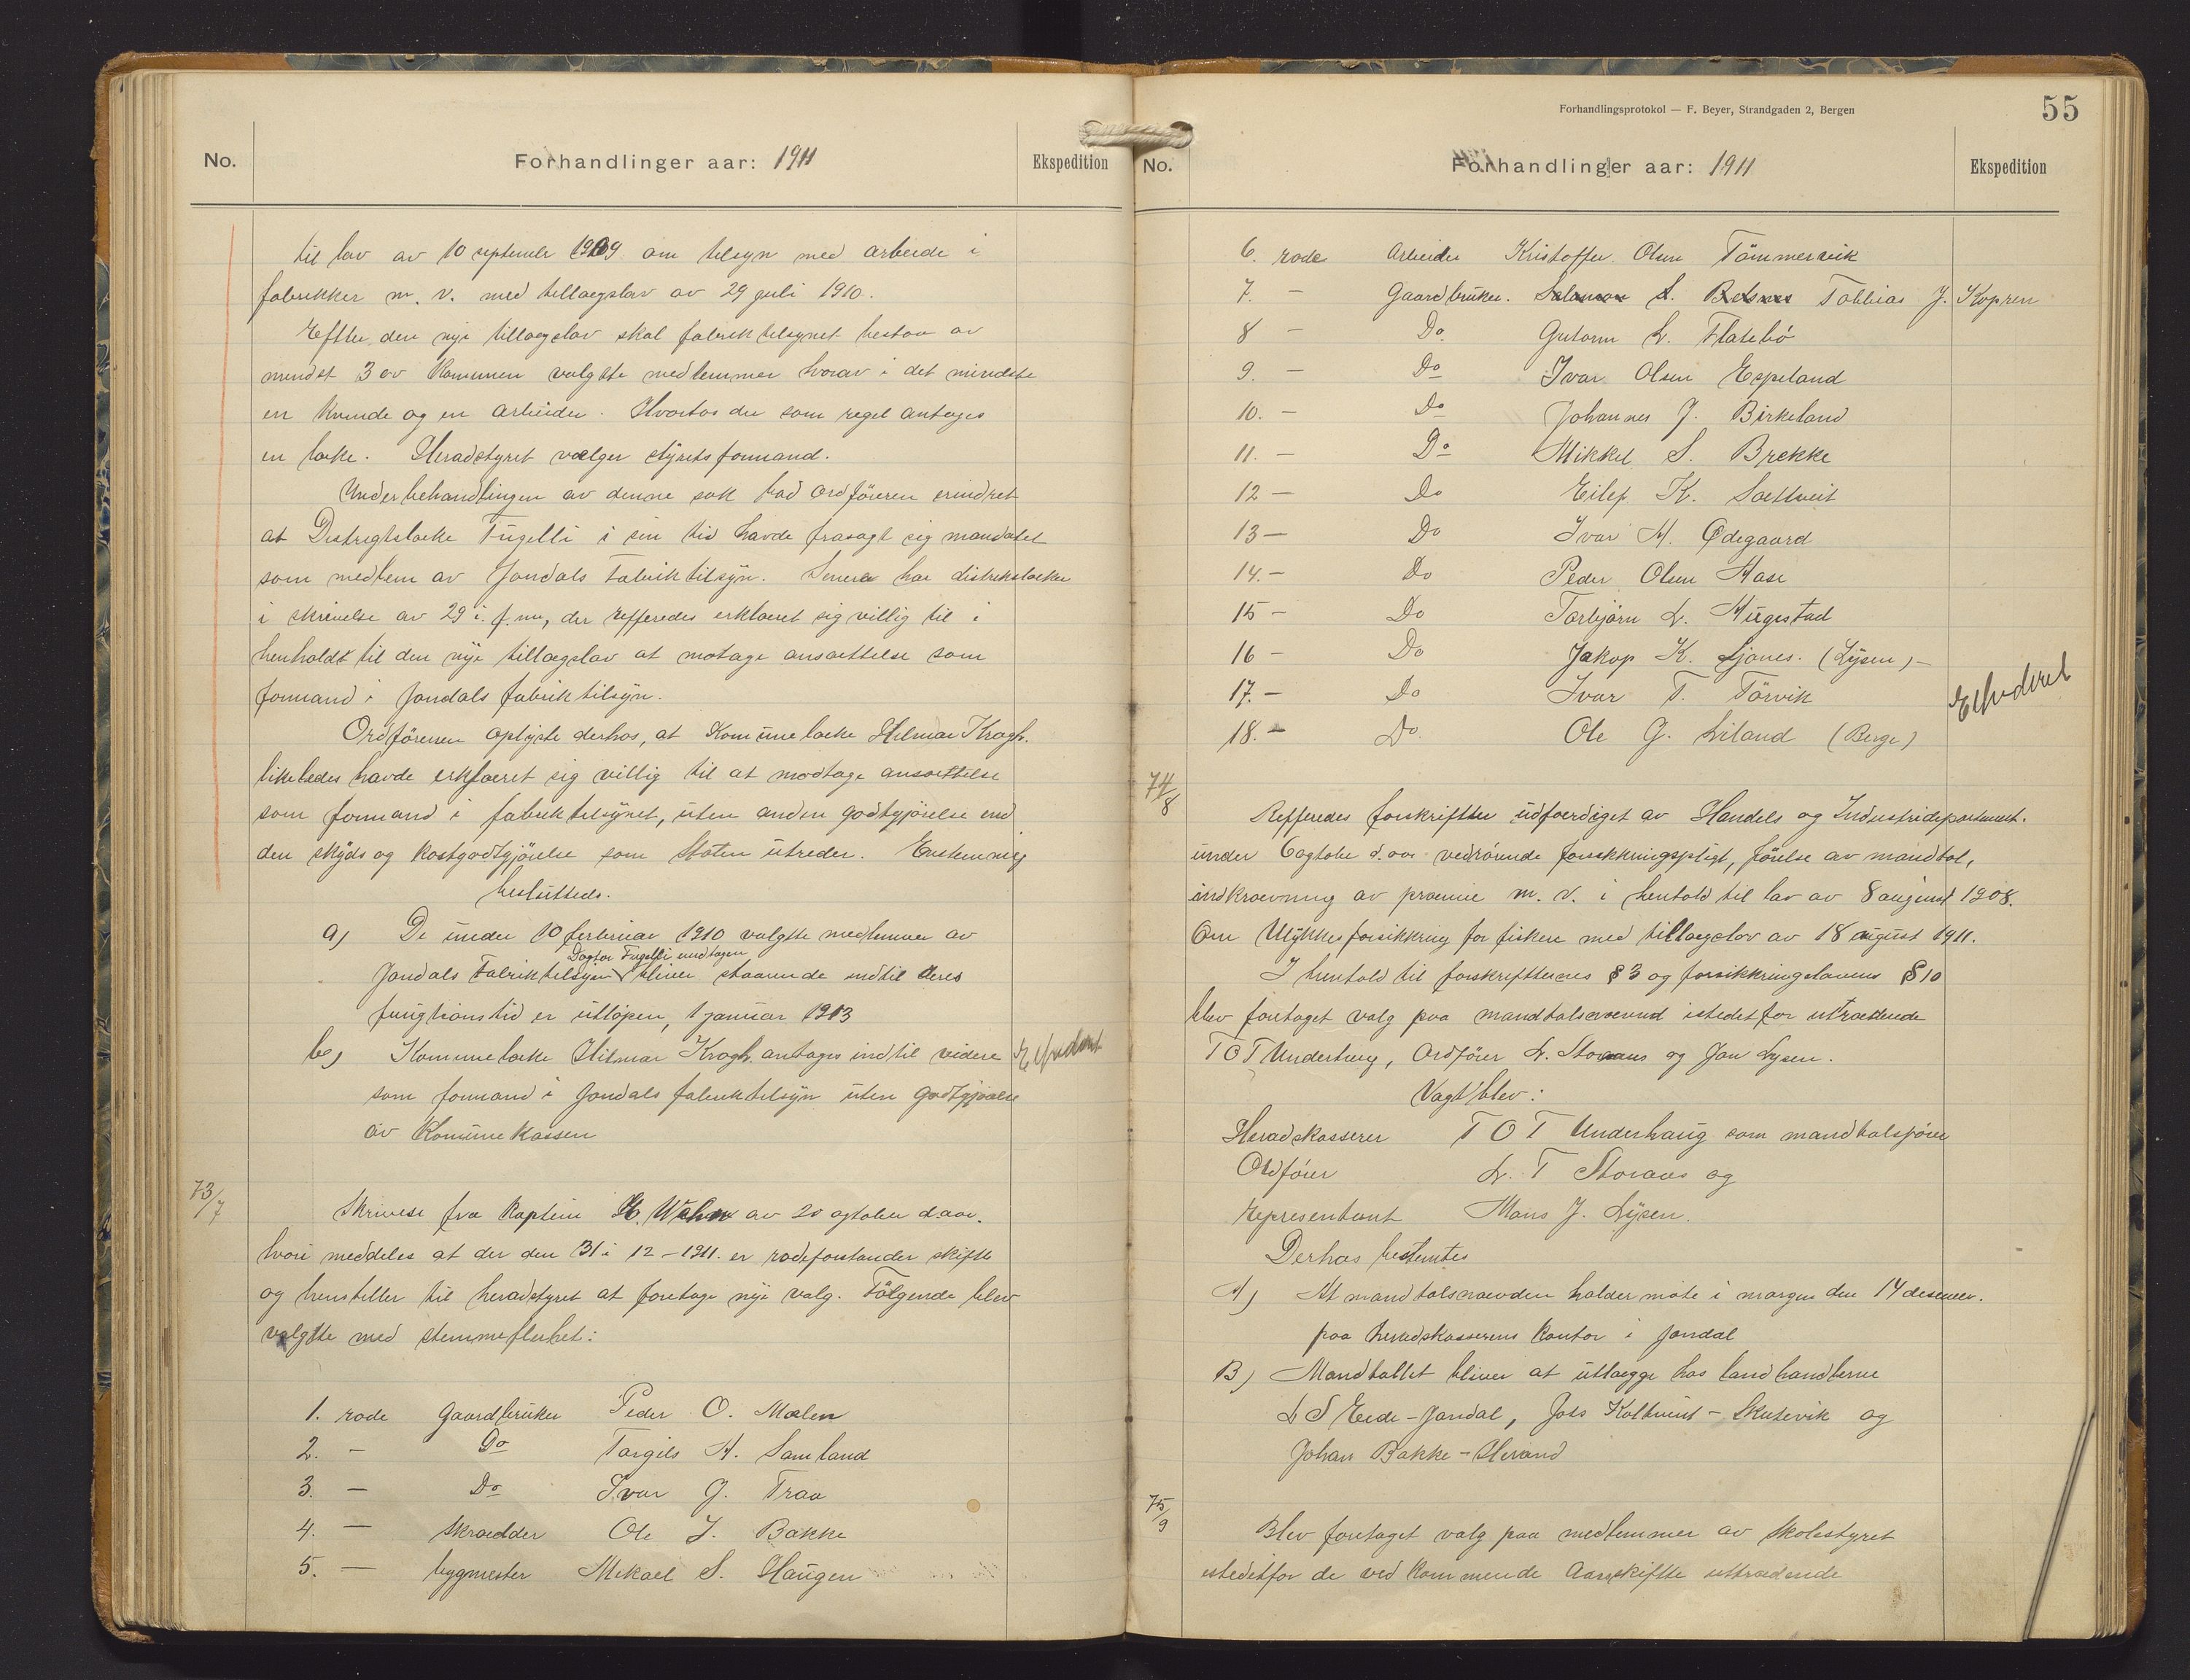 No.
Forhandlinger aar: 1911
Ekspedition
til lov av 10 septembr 1909 om tilsyn med arbeide i
fabrikker m. v. med tillægslov av 29 juli 1910.
Efter den nye tillægslov skal fabriktilsynet bestaa av
mindst 3 av Kommunen valgte medlemmer hvorav i det mindste
en kvinde og en arbeider. Hvorhos der som regel antages
en læke. Heradstyret vælger styrets formand.
Under behandlingen av denne sak bad ordføreren erindret
at Destrigtslæke Fugelli i sin tid havde frasagt sig mandatet
som medlem av Jondals Fabriktilsyn. Senere har distrikslæken
i skrivelse av 29 i. f. mn, der refferedes erklæret sig villig til i
henholdt til den nye tillægslov at motage ansættelse som
formand i Jondals fabriktilsyn.
Ordføreren oplyste derhos, at Komunelæke Hilmar Krogh.
likeledes havde erklæret sig villig til at modtage ansættelse
som formand i fabriktilsynet, uten anden godtgjørelse end
den skyds og kostgodtgjørelse som Staten utreder. Enstemmig
besluttedes.
a) De under 10 februar 1910 valgte medlemmer av
Dogtor Fugelli undtagen
Jondals Fabriktilsyn bliver staaende indtil deres
fungtionstid er utløpen, 1 januar 1913
b) Kommunelæke Hilmar Krogh. antages indtil videre
Ekspedert
som formand i Jondals fabriktilsyn uten godtgjørelse
av Komunekassen
73/7
Skrivese fra Kaptein H. Wehn av 20 ogtober d aar.
hvori meddeles at der den 31 i 12 - 1911. er rodeforstander skifte
og henstiller til heradstyret at foretage nye valg. Følgende blev
valgte med stemmeflerhet:
1. rode Gaardbruker Peder O. Mælen
2. - Do Torgils H. Samland
3. - Do Ivar G. Traa
4. - Skrædder Ole J. Bakke
5. - bygmester Mikael S. Haugen
Forhandlingsprotokol — F. Beyer, Strandgaden 2, Bergen
55
No.
Forhandlinger aar: 1911
Ekspedition
6. rode Arbeider Kristoffer Olsen Tømmervik
7. - Gaardbruker. Salamon S. Belsnes Tobbias J. Kopren
8 - Do Gutorm L. Flatebø
9. - Do Ivar Olsen Espeland
10. - Do Johannes J. Birkeland
11. - Do Mikkel S. Brekke
12 - Do Eilef K. Sæltveit
13 - Do Ivar M. Ødegaard
14. - Do Peder Olsen Aase
15 - Do Torbjørn L. Augestad
16 - Do Jakop K. Sjones. (Lysen) -
17. - Do Ivar T. Tørvik
18. - Do Ole G. Liland (Berge)
Ekspederet
74/8
Refferedes forskrifter udfærdiget av Handels og Industridepartement.
under 6 ogtober d. aar vedrørende forsikringspligt, førelse av mandtal,
indkrævning av præmie m. v. i henhold til lov av 8 august 1908.
Om Ulykkesforsikkring for fiskere med tillægslov av 18 august 1911.
I henhold til forskrifternes § 3 og forsikkringslovens § 10
blev foretaget valg paa mandtalsnævnd istedetfor utrædende
T O T Underhaug, Ordfører L. Storaas og Jon Lysen.
Vagt blev:
Heradskasserer T O T Underhaug som mandtalsfører
Ordfører L. T Storaas og
Representant Mons J. Lysen.
Derhos bestemtes
A) At mandtalsnævnden holder møte i morgen den 14 desember.
paa heradskasserens kontor i Jondal
B) Mandtallet bliver at utlægge hos landhandlerne
L S Eide - Jondal, Johs Koltveit - Skutevik og
Johan Bakke - Herand
75/9
Blev foretaget valg paa medlemmer av Skolestyret
istedetfor de ved kommende Aarsskifte uttrædende